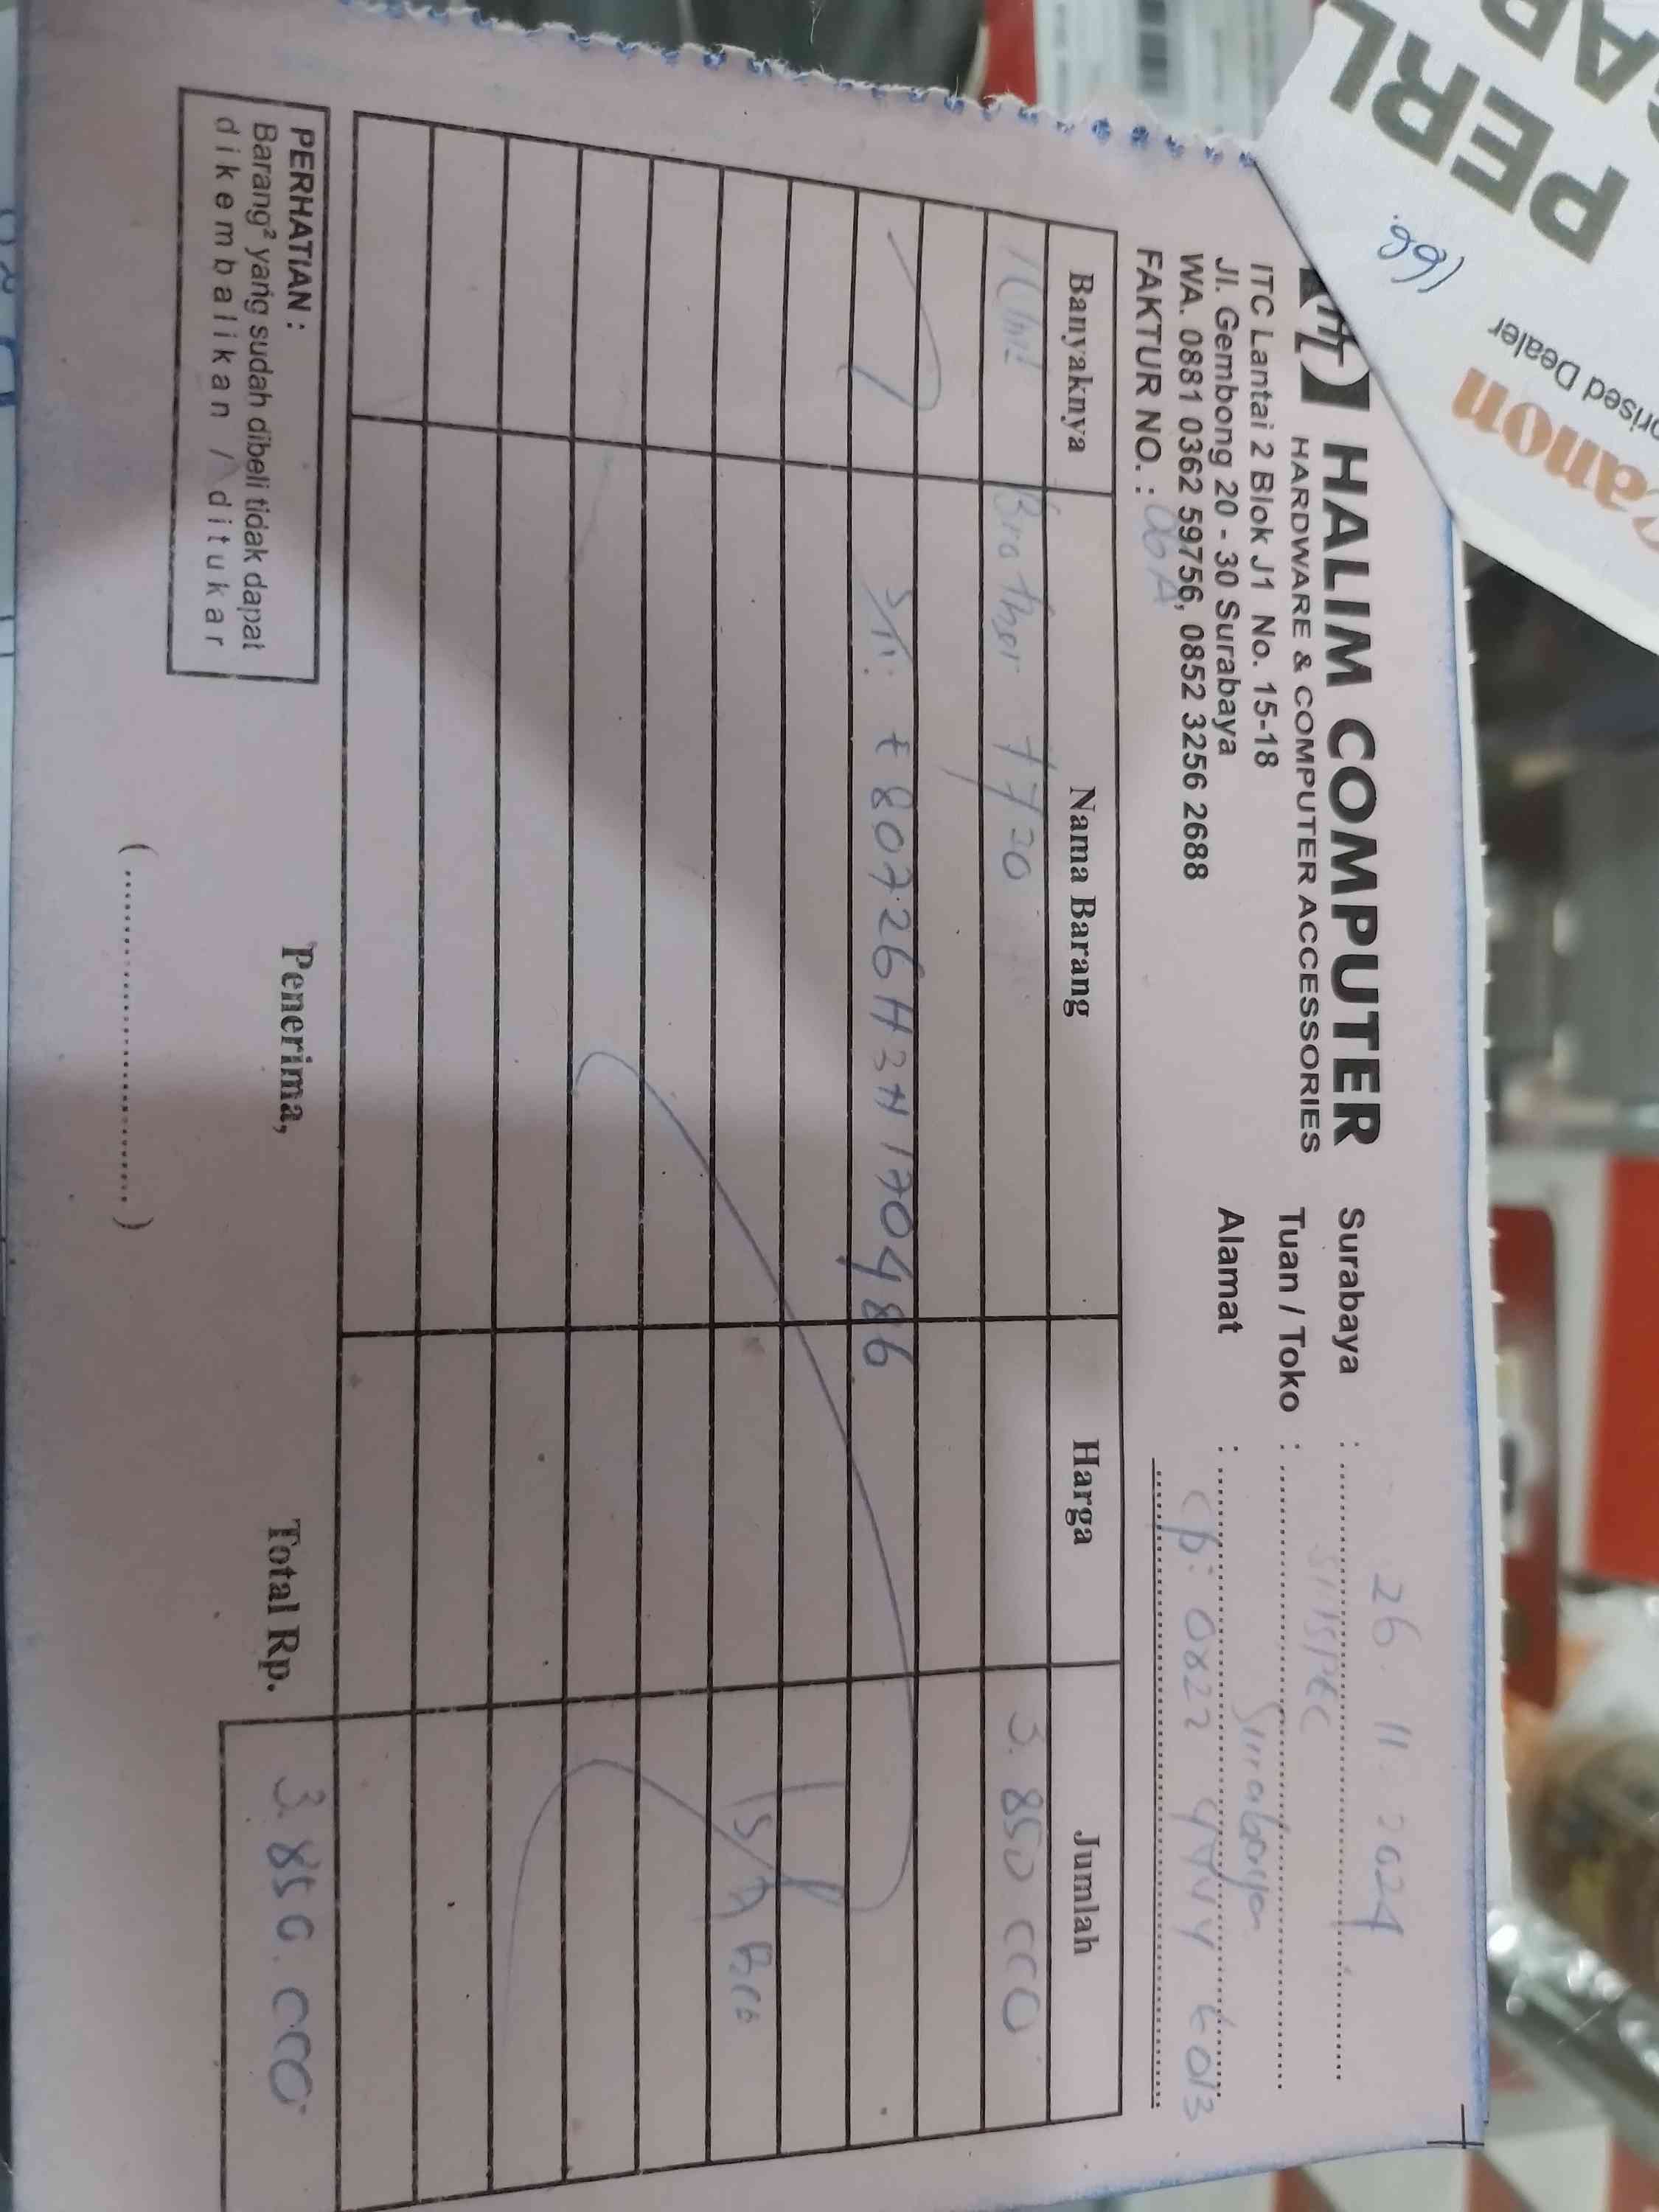 HALIM COMPUTER
HARDWARE & COMPUTER ACCESSORIES
ITC Lantai 2 Blok J1 No. 15-18
Jl. Gembong 20 - 30 Surabaya
WA. 0881 0362 59756, 0852 3256 2688
FAKTUR NO. : 06A
Surabaya : 26 11 2024
Tuan / Toko :
Alamat : Surabaya
Cp: 0822
Banyaknya Nama Barang Harga Jumlah
1 Unit Brother T720 3.850.000
S/N: E80726H3N170486
3.850.000
Total Rp.
Penerima,
(....................)
PERHATIAN :
Barang² yang sudah dibeli tidak dapat
dikembalikan / ditukar
PERL
Canon
rised Dealer